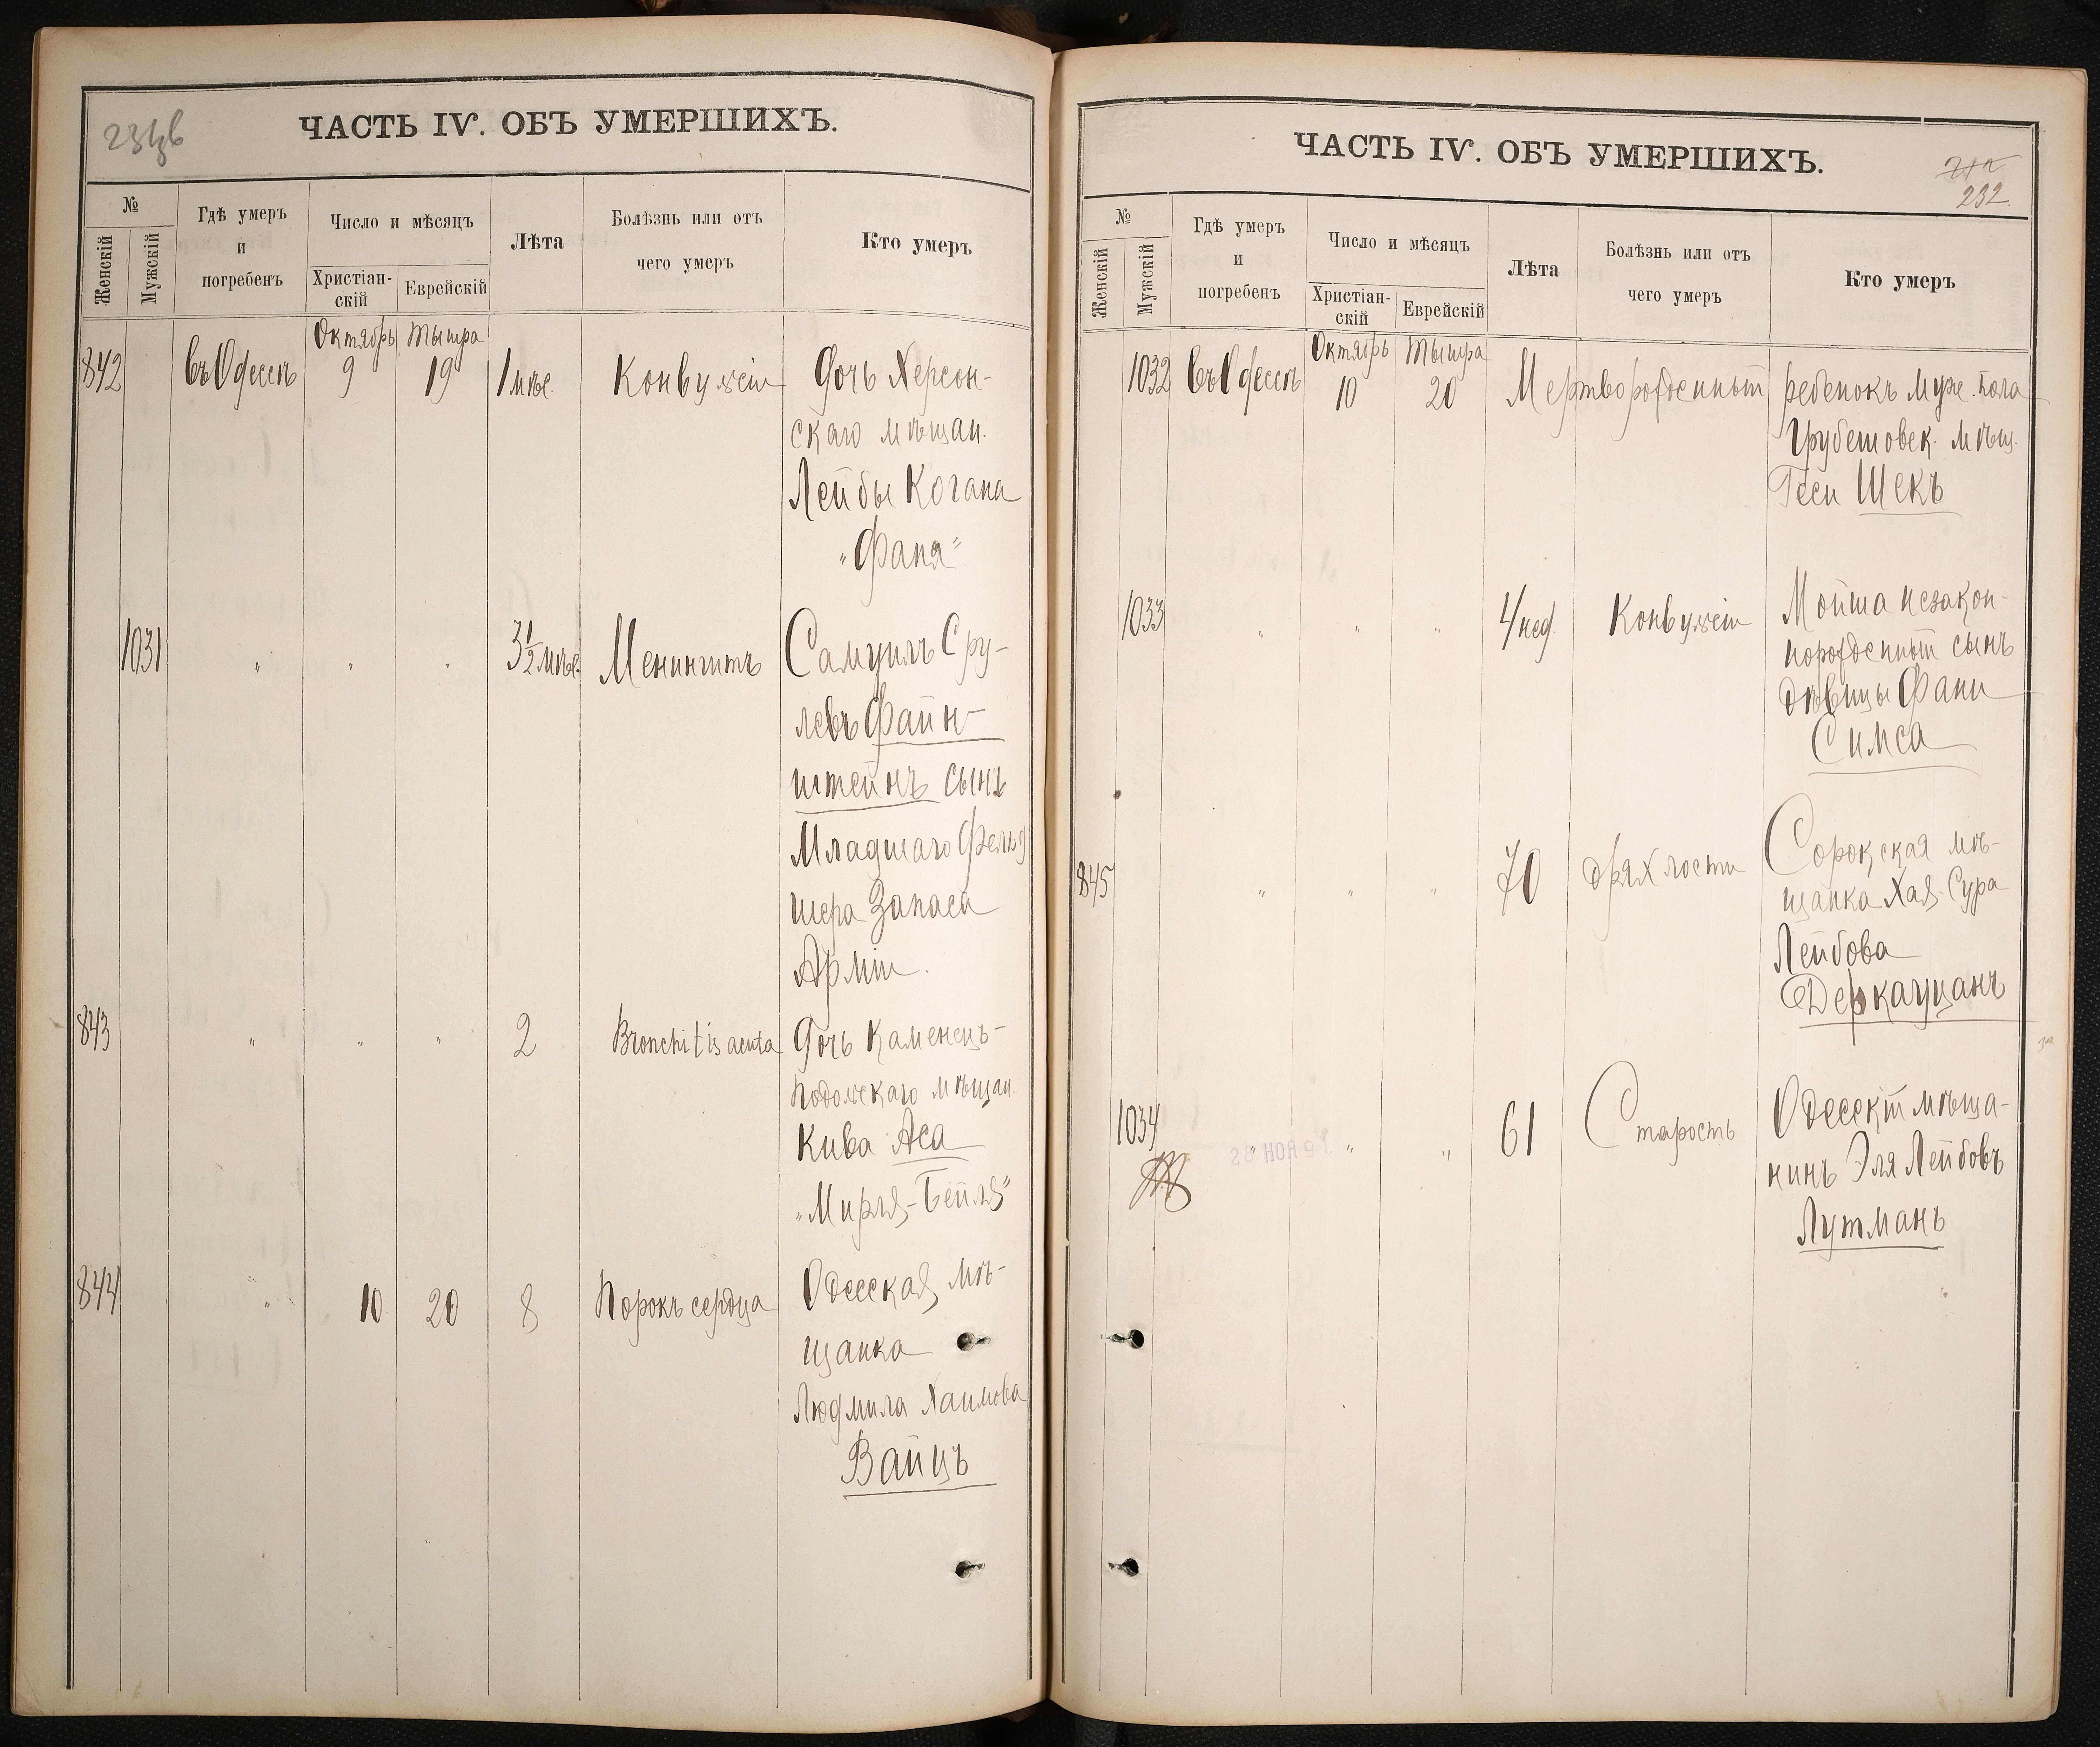 ЧАСТЬ IV. ОБЪ УМЕРШИХЪ.
№
Женскій
Мужскій
Гдѣ умеръ
и
погребенъ
Число и мѣсяцъ
Христіан-
скій
Еврейскій
Лѣта
Болѣзнь или отъ
чего умеръ
Кто умеръ
Октябрь Тышра
842 въ Одессѣ 9 19 1 мѣс. Конвульсіи Дочь Херсон-
скаго мѣщан.
Лейбы Когана
„Фаня"
1031 " " " 3 1/2 мѣс. Менингитъ Самуилъ Сру-
левъ Файн-
штейнъ сынъ
Младшаго Фельд
шера Запаса
Арміи.
843 " " " 2 Bronchitis acuta Дочь Каменецъ-
Подольскаго мѣщан.
Кива Аса
„Мирля-Бейля"
844 " 10 20 8 Порокъ сердца Одесская мѣ-
щанка
Людмила Хаимова
Вайцъ
ЧАСТЬ IV. ОБЪ УМЕРШИХЪ.
232.
№
Женскій
Мужскій
Гдѣ умеръ
и
погребенъ
Число и мѣсяцъ
Христіан-
скій
Еврейскій
Лѣта
Болѣзнь или отъ
чего умеръ
Кто умеръ
Октябрь Тышра
1032 въ Одессѣ 10 20 Мертворожденный ребенокъ муж. пола
Грубешовск. мѣщ.
Геси Шекъ
1033 " " " 4 нед. Конвульсіи Мойша незакон-
норожденный сынъ
дѣвицы Фани
Симса
845 " " " 70 дряхлости Сорокская мѣ-
щанка Хая-Сура
Лейбова
Деркауцанъ
1034 " " " 61 Старость Одесскій мѣща-
нинъ Эля Лейбовъ
Лутманъ